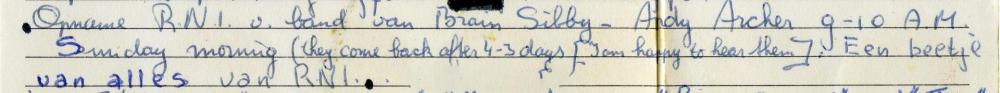 • Opname R.N.I. v. band van Brain Silby - Andy Archer 9-10 A.M.
Sunday morning (they come back after 4-3 days) [I am happy to hear them]. Een beetje
van alles van RNI..